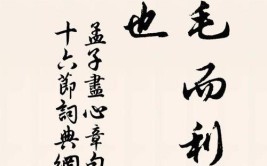 毛而利
也
孟子盡心章句
十六節詞典網